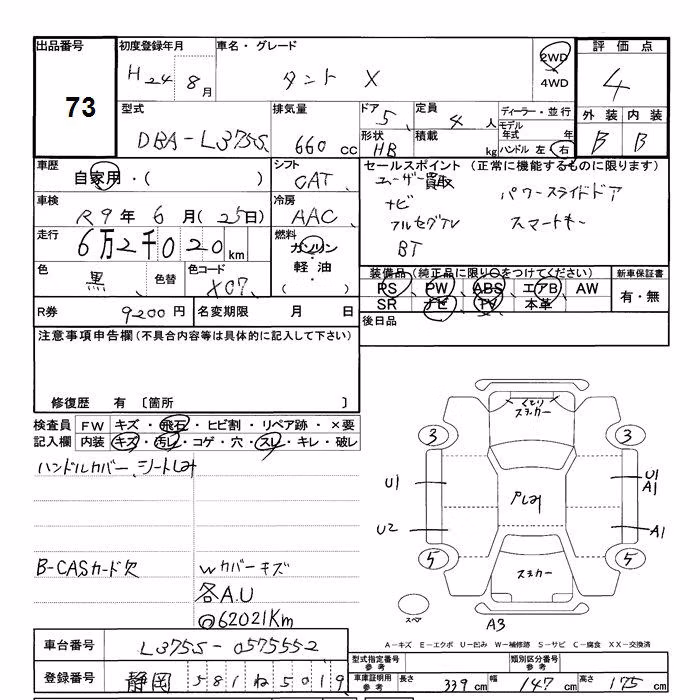 出品番号 初度登録年月 車名・グレード 評価点
73
H24 8月 タント X 2WD 4WD 4
型式 排気量 ドア 定員 ディーラー・並行 外装 内装
DBA-L375S 660 cc 5 4人 モデル年式 年 B B
形状 HB 積載 kg ハンドル 左 右
車歴 シフト セールスポイント (正常に機能するものに限ります)
自家用・( ) CAT ユーザー買取 パワースライドドア
車検 冷房 ナビ スマートキー
R9年6月(25日) AAC フルセグTV
走行 燃料 BT
6万2千020km ガソリン
軽油
( )
色 黒 色替 色コード X07
装備品 (純正品に限り○をつけてください) 新車保証書
PS PW ABS エアB AW 有・無
SR ナビ TV 本革
R券 9200円 名変期限 月 日 後日品
注意事項申告欄(不具合内容等は具体的に記入して下さい)
修復歴 有 〔箇所 〕
検査員 FW キズ・飛石・ヒビ割・リペア跡・×要
記入欄 内装 キズ・汚レ・コゲ・穴・スレ・キレ・破レ
ハンドルカバー、シートしみ
B-CASカード欠 Wカバーキズ
各A.U
@62021Km
くもり
ステッカー
3 3
U1 U1
A1
U2 A1
5 5
ステッカー
スペア A3
A-キズ E-エクボ U-凹み W-補修跡 S-サビ C-腐食 XX-交換済
車台番号 L375S-0575552 型式指定番号 参考 類別区分番号 参考
登録番号 静岡 581 ね 5019 車庫証明用 参考 長さ 339cm 幅 147cm 高さ 175cm